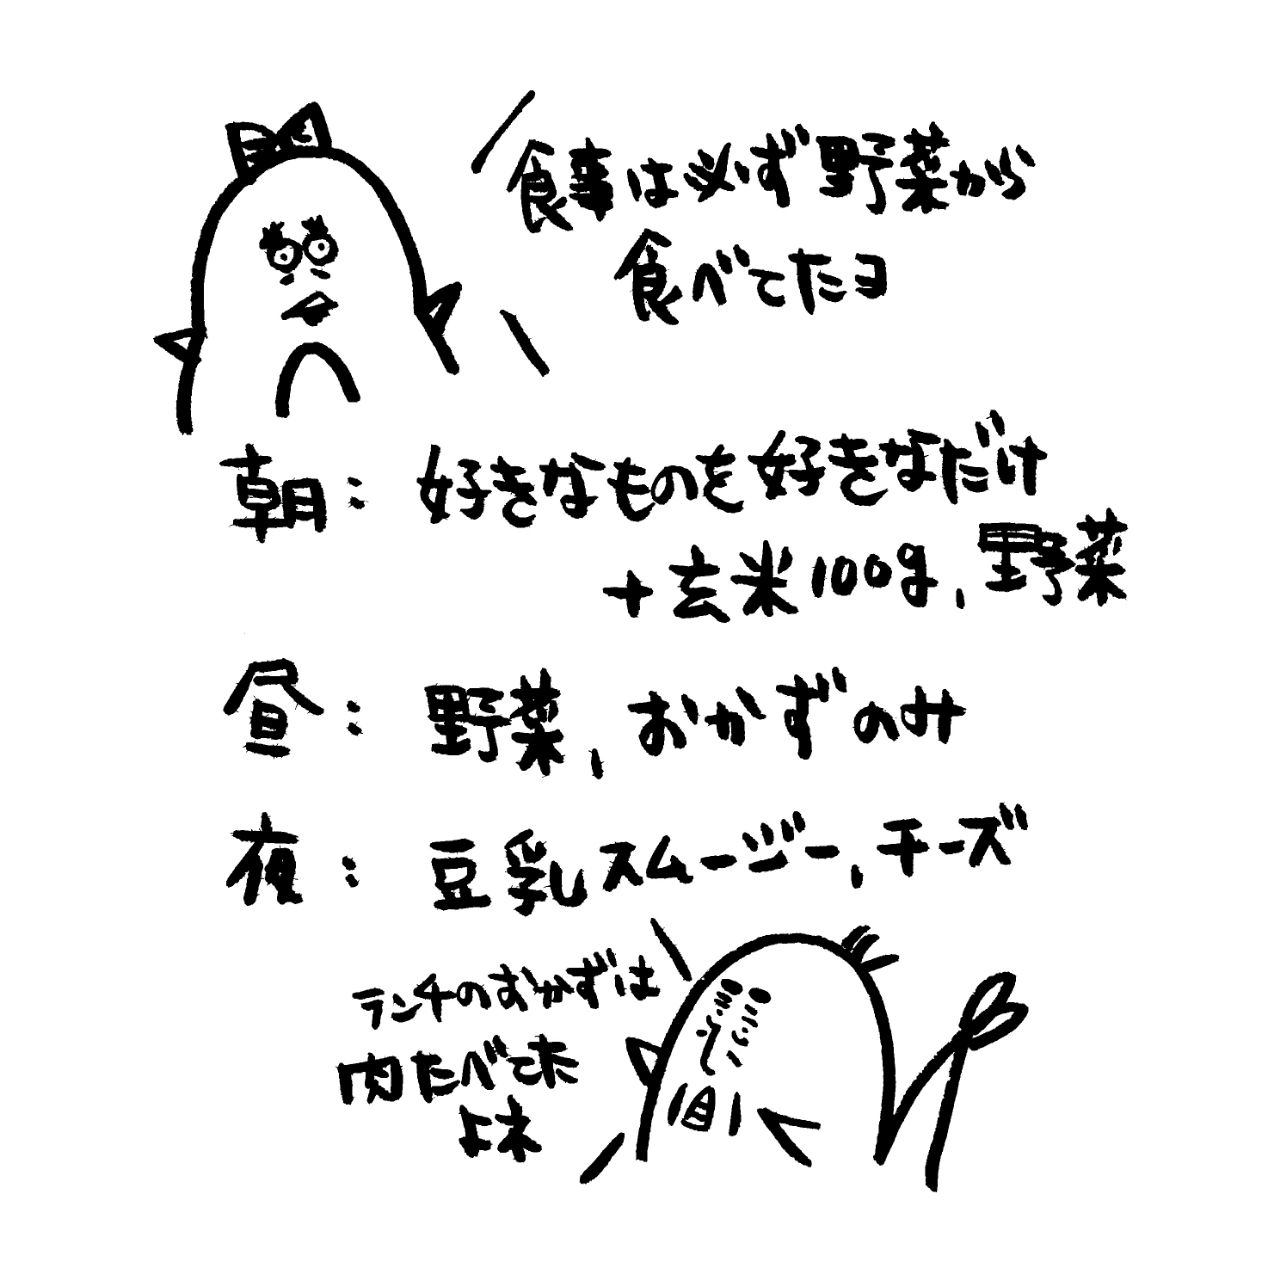 食事は必ず野菜から
食べてたヨ
朝: 好きなものを好きなだけ
+玄米100g, 野菜
昼: 野菜, おかずのみ
夜: 豆乳スムージー, チーズ
ランチのおかずは
肉たべてた
よネ